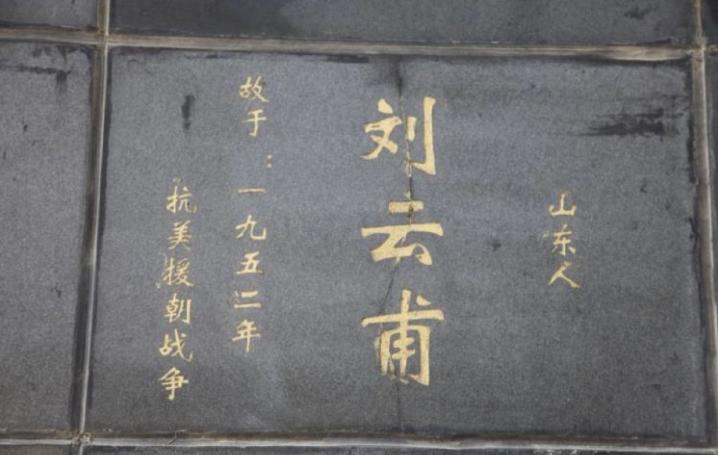 山东人
刘云甫
故于：一九五二年
抗美援朝战争